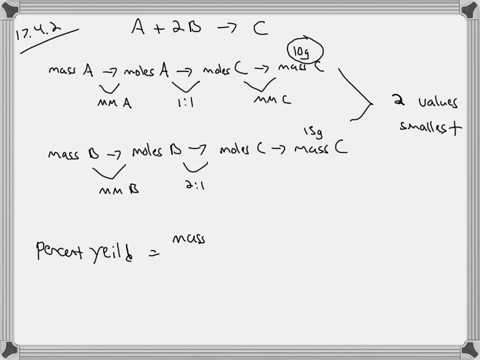 17.4.2
A + 2B → C
10g
mass A → moles A → moles C → mass C
MM A 1:1 MM C
2 values
smallest
15g
mass B → moles B → moles C → mass C
MM B 2:1
mass
percent yeild =